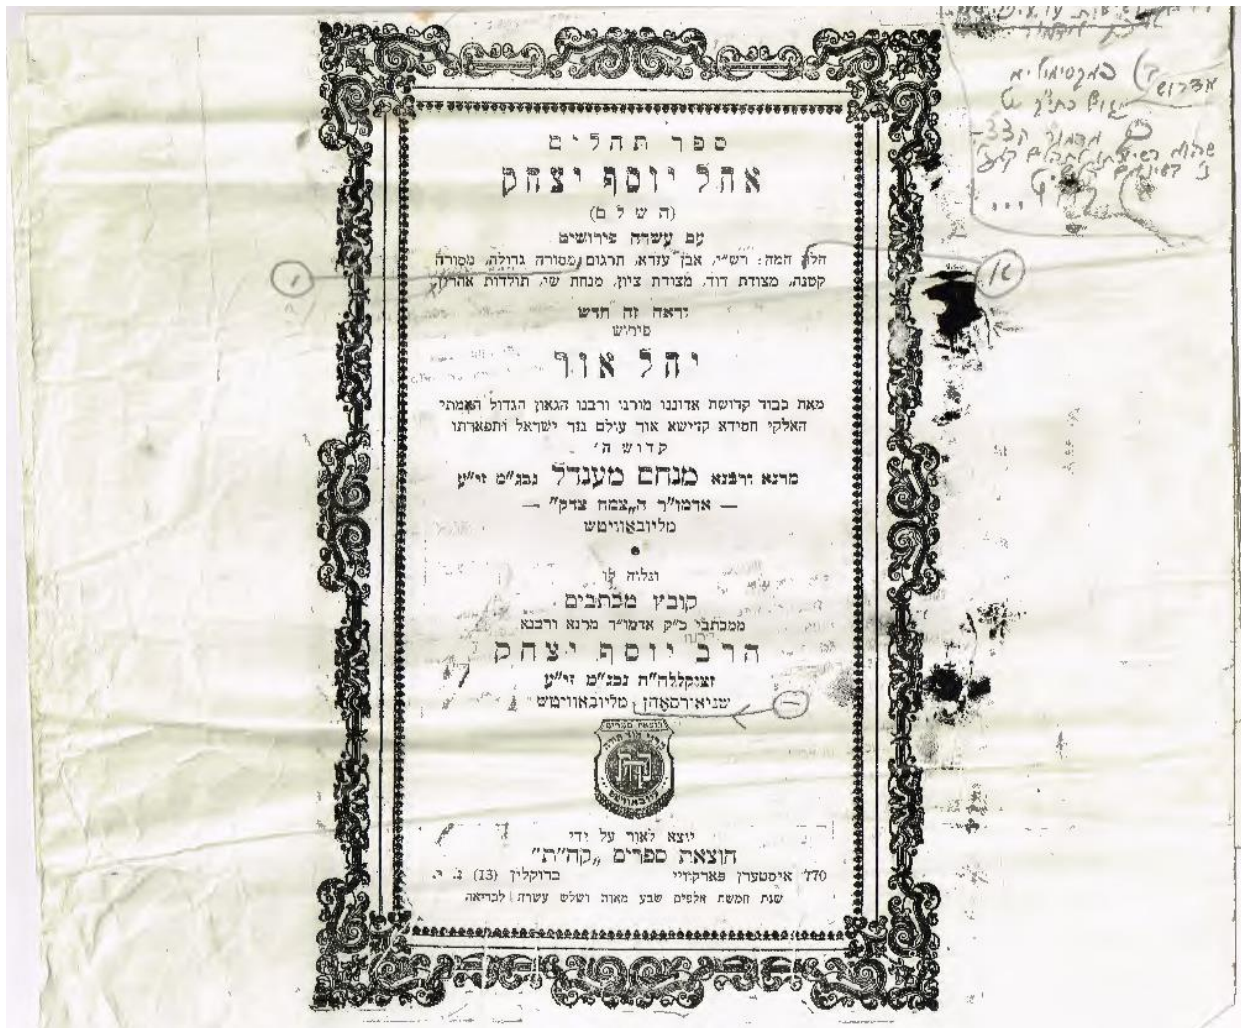 ספר תהלים
אהל יוסף יצחק
(השלם)
עם עשרה פירושים
חלק חמה: רש״י, אבן עזרא, תרגום, מסורה גדולה, מסורה
קטנה, מצודת דוד, מצודת ציון, מנחת שי, תולדות אהרן
וראה זה חדש
פירוש
יהל אור
מאת כבוד קדושת אדוננו מורנו ורבנו הגאון הגדול האמתי
האלקי חסידא קדישא אור עולם נזר ישראל ותפארתו
קדוש ה׳
מרנא ורבנא מנחם מענדל נבג״מ זי״ע
— אדמו״ר ה„צמח צדק״ —
מליובאוויטש
ונלוה לו
קובץ מכתבים
ממכתבי כ״ק אדמו״ר מרנא ורבנא
הרב יוסף יצחק
זצוקללה״ה נבג״מ זי״ע
שניאורסאהן מליובאוויטש
הוצאת ספרים
ליובאוויטש
יוצא לאור על ידי
הוצאת ספרים „קה״ת״
770 איסטערן פארקוויי ברוקלין (13) נ. י.
שנת חמשת אלפים שבע מאות ושלש עשרה לבריאה